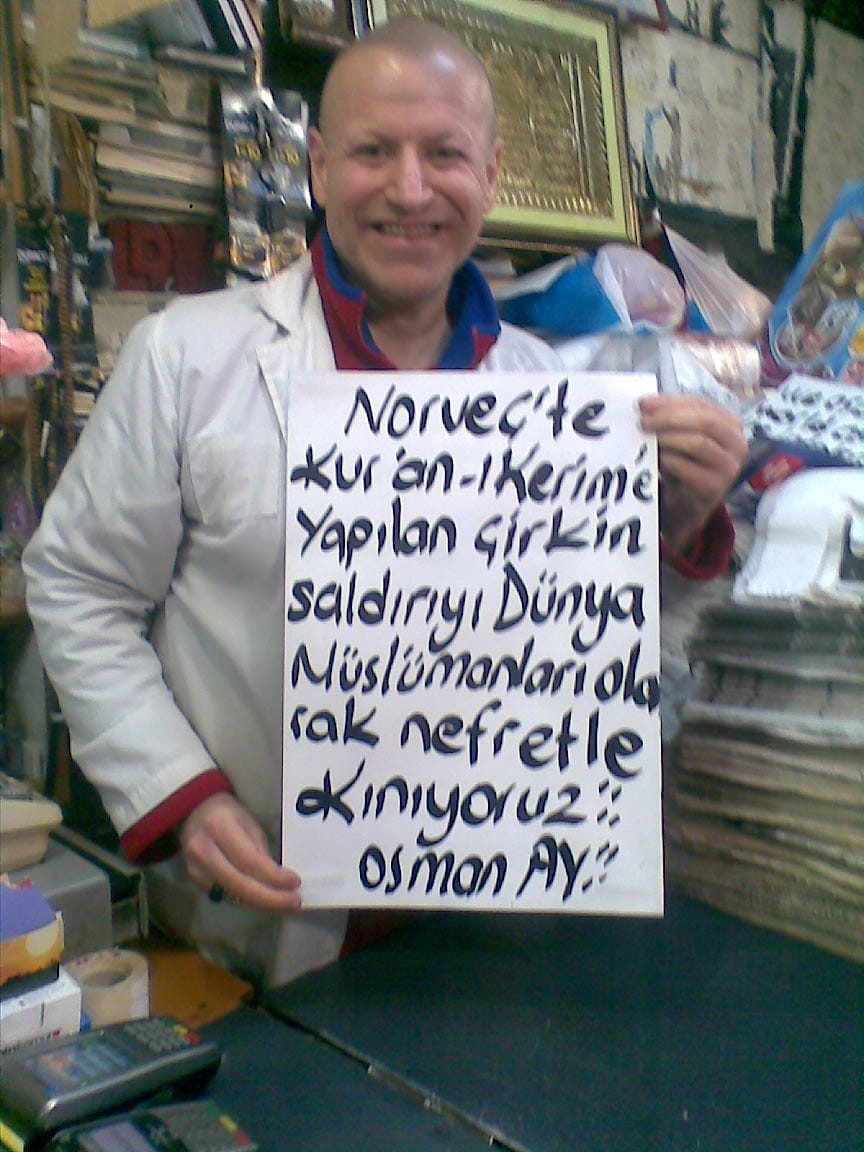 Norveç'te
Kur'an-ı Kerim'e
Yapılan çirkin
saldırıyı Dünya
Müslümanları ola
rak nefretle
Kınıyoruz!!
Osman AY!!